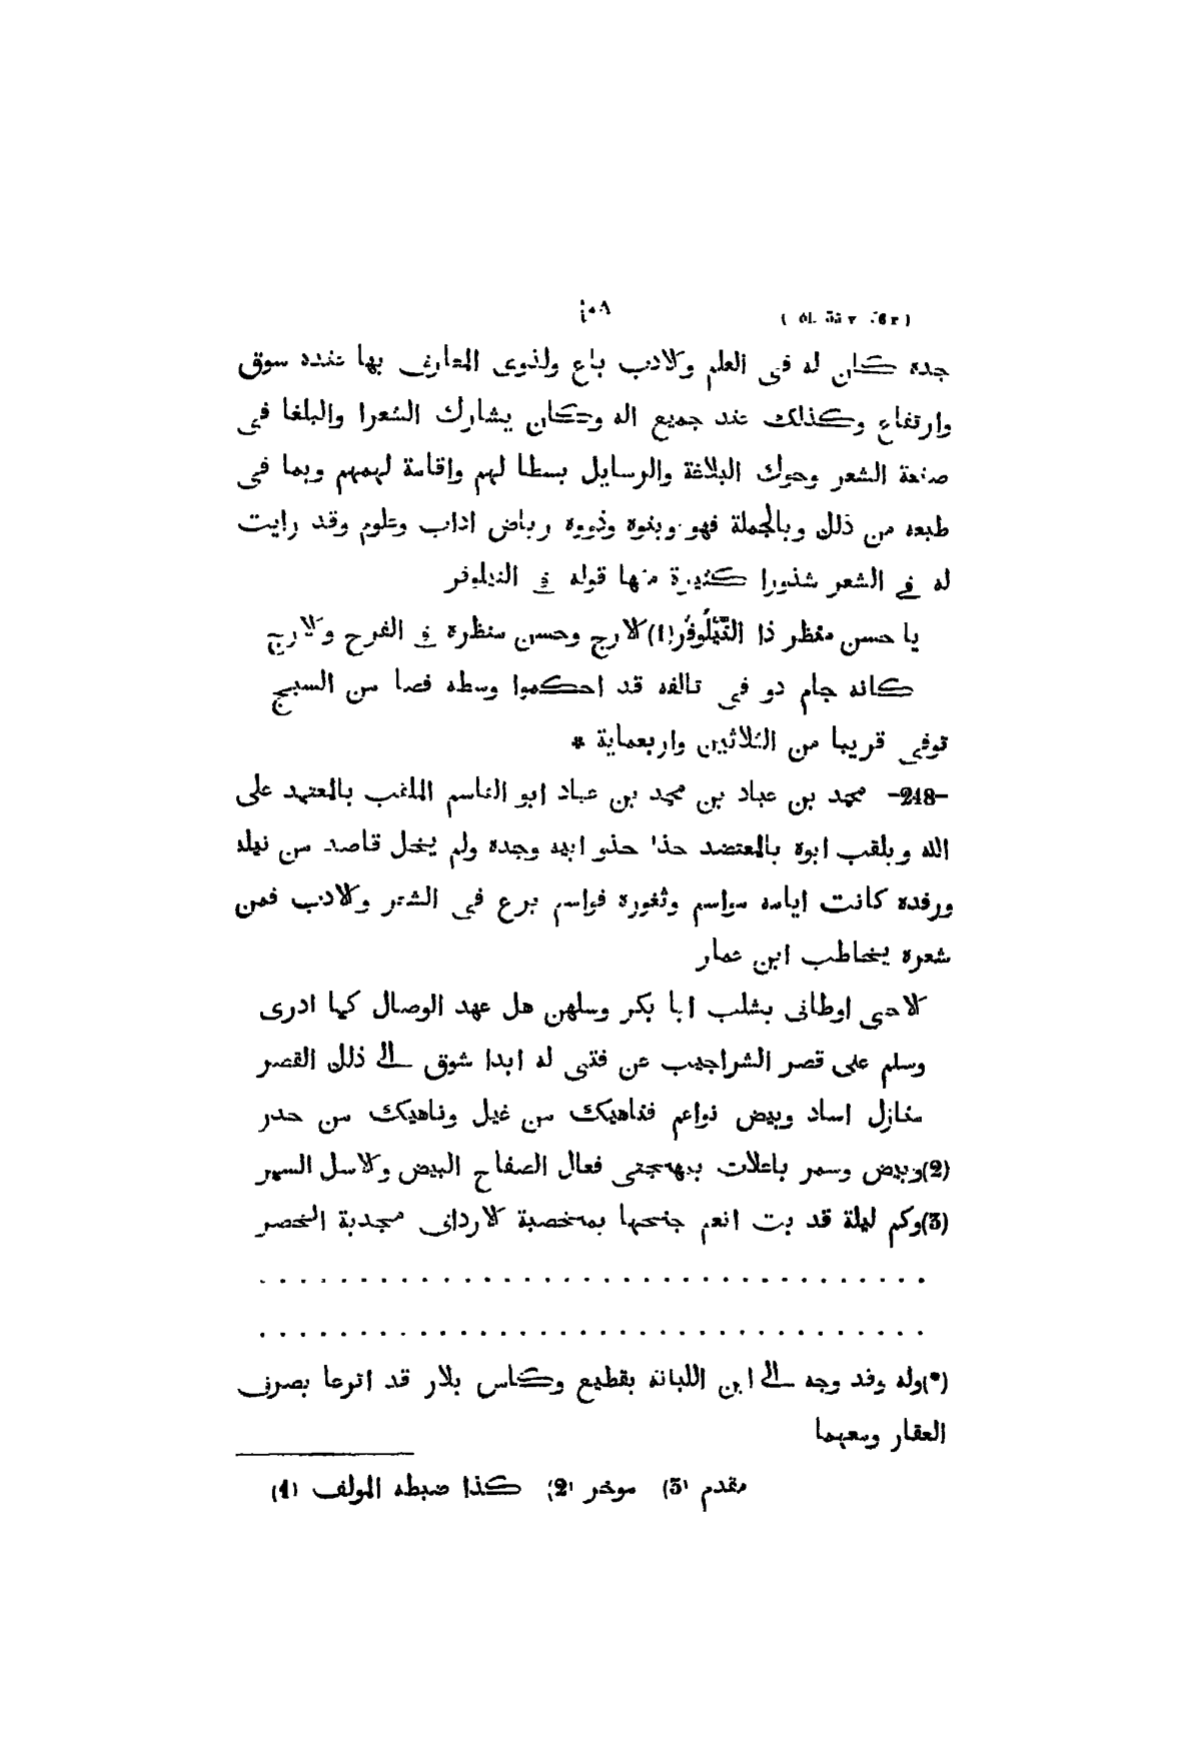 جده كان له فى العلم والادب باع ولذوى المعارف بها عنده سوق
وارتفاع وكذلك عند جميع اله وكان يشارك الشعرا والبلغا فى
صنعة الشعر وحوك البلاغة والرسايل بسطا لهم واقامة لهممهم وبما فى
طبعه من ذلك وبالجملة فهو وبنوه وذووه رياض اداب وعلوم وقد رايت
له فى الشعر شذورا كثيرة منها قوله فى النيلوفر
يا حسن منظر ذا النَّيْلُوفَر(1)الارج وحسن منظرة فى الفرح والارج
كانه جام در فى تالفه قد احكموا وسطه فصا من السبج
توفى قريبا من الثلاثين واربعماية *
-248- محمد بن عباد بن محمد بن عباد ابو القاسم الملقب بالمعتمد على
الله ويلقب ابوه بالمعتضد حذا حذو ابيه وجده ولم يخل قاصد من نيله
ورفده كانت ايامه مواسم وثغوره فواسم برع فى الشعر والادب فمن
شعره يخاطب ابن عمار
الاحى اوطانى بشلب ابا بكر وسلهن هل عهد الوصال كما ادرى
وسلم على قصر الشراجيب عن فتى له ابدا شوق الى ذلك القصر
منازل اساد وبيض نواعم فناهيك من غيل وناهيك من خدر
(2)وبيض وسمر باعلات بمهجتى فعال الصفاح البيض والاسل السمر
(3)وكم ليلة قد بت انعم جنحها بمخصبة الارداف مجدبة الخصر
. . . . . . . . . . . . . . . . . . . . . . . . . . . . . . . . . .
. . . . . . . . . . . . . . . . . . . . . . . . . . . . . . . . . .
(*)وله وقد وجه الى ابن اللبانة بقطيع وكاس بلار قد اترعا بصرف
العقار ومعهما
(1) كذا ضبطه المولف (2) موخر (3) مقدم